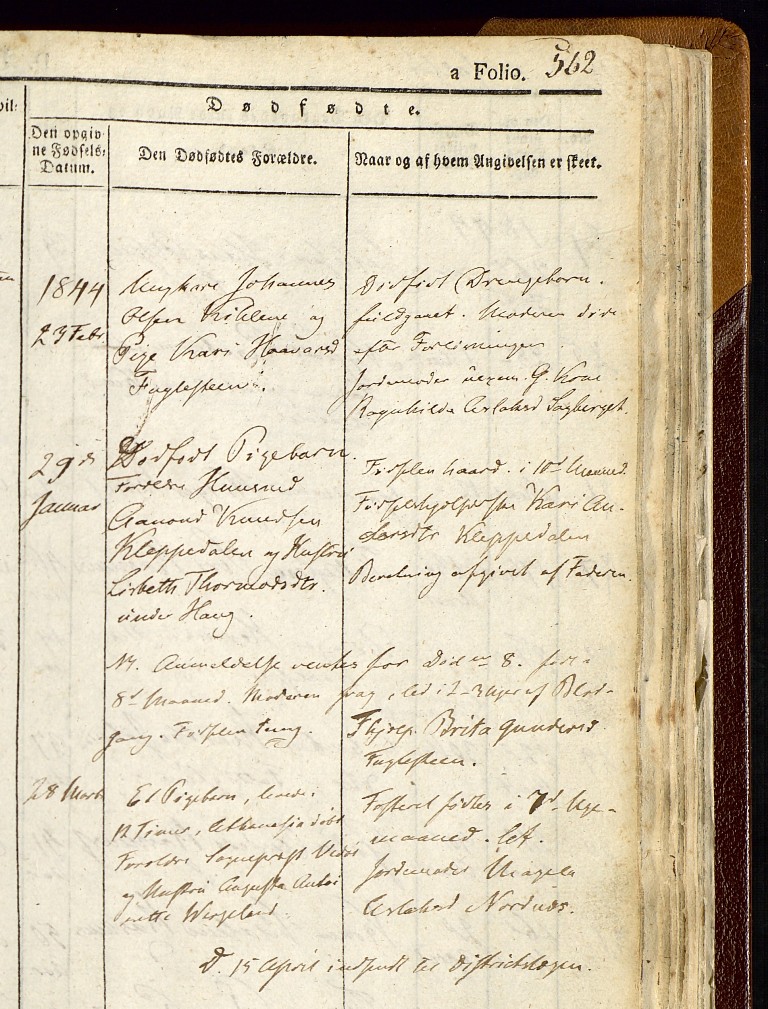 a Folio. 562
Dødfødte.
Den opgiv-
ne Fødsels-
Datum.
Den Dødfødtes Forældre.
Naar og af hvem Angivelsen er skeet.
1844
23 Febr
Ungkarl Johannes
Olsen og
Pige Kari Haavarsd
Fuglesteen.
Dødfødt Drengebarn.
fuldbaaret. Moderen døde
efter Forløsningen.
Jordemoder G.
Ragnhilda Aslaksd Sagberget.
29de
Januar
Dødfødt Pigebarn.
Forældre Huusmd
Aamond Knudsen
Kleppedalen og Hustru
Lisbeth Thormodsdtr.
under Haug.
Fødslen haard. i 10d Maaned.
Fødselshjelperske Kari An-
dersdtr Kleppedalen
Beretning afgivet af Faderen.
Anmeldelse ventes for Død No 8. født i
8d Maaned. Moderen svag, led i 2-3 Uger af Blod-
gang. Fødslen tung.
Fhjelp. Brita Gundersd.
Fuglesteen.
28 Marts
Et Pigebarn, levede i
12 Timer,
Forældre Sognepræst
og Hustru Augusta Antoi-
nette Wergeland.
Fosteret fødtes i 7d
maaned. let.
Jordemoder
Aslaksd Nordnes.
D. 15 April indsendt til Districtslægen.